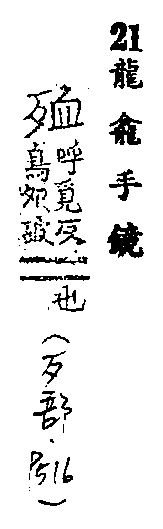 21龍龕手鏡
殈呼覓反
鳥
也（歹部·P516）